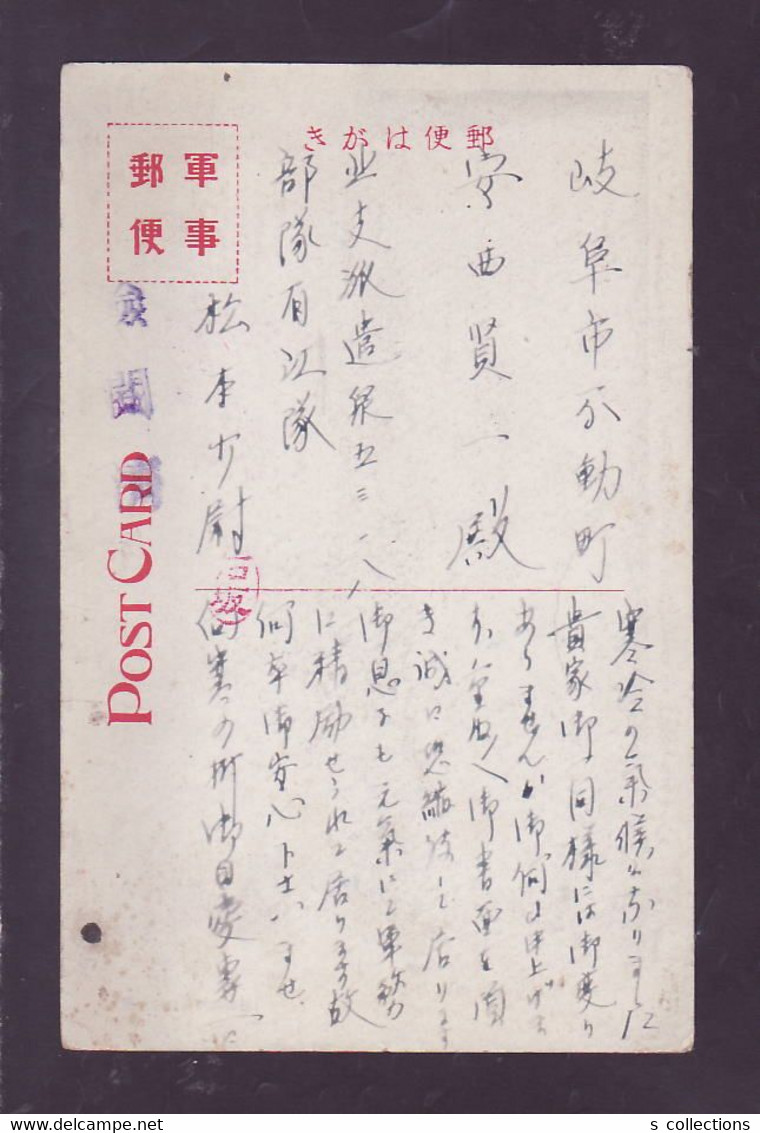 郵便はがき
軍事
郵便
岐阜市不動町
安西賢一殿
北支派遣 五三一八
部隊 江隊
松本少尉
POST CARD
寒冷の気候になりました
貴家御一同様には御変り
ありませんか御伺ひ申上げます
御書面を頂
き誠に恐縮致して居ります
御息子も元気にて軍務
に精励せられて居ります故
何卒御安心下さいませ
向寒の折御自愛専一に
s collections